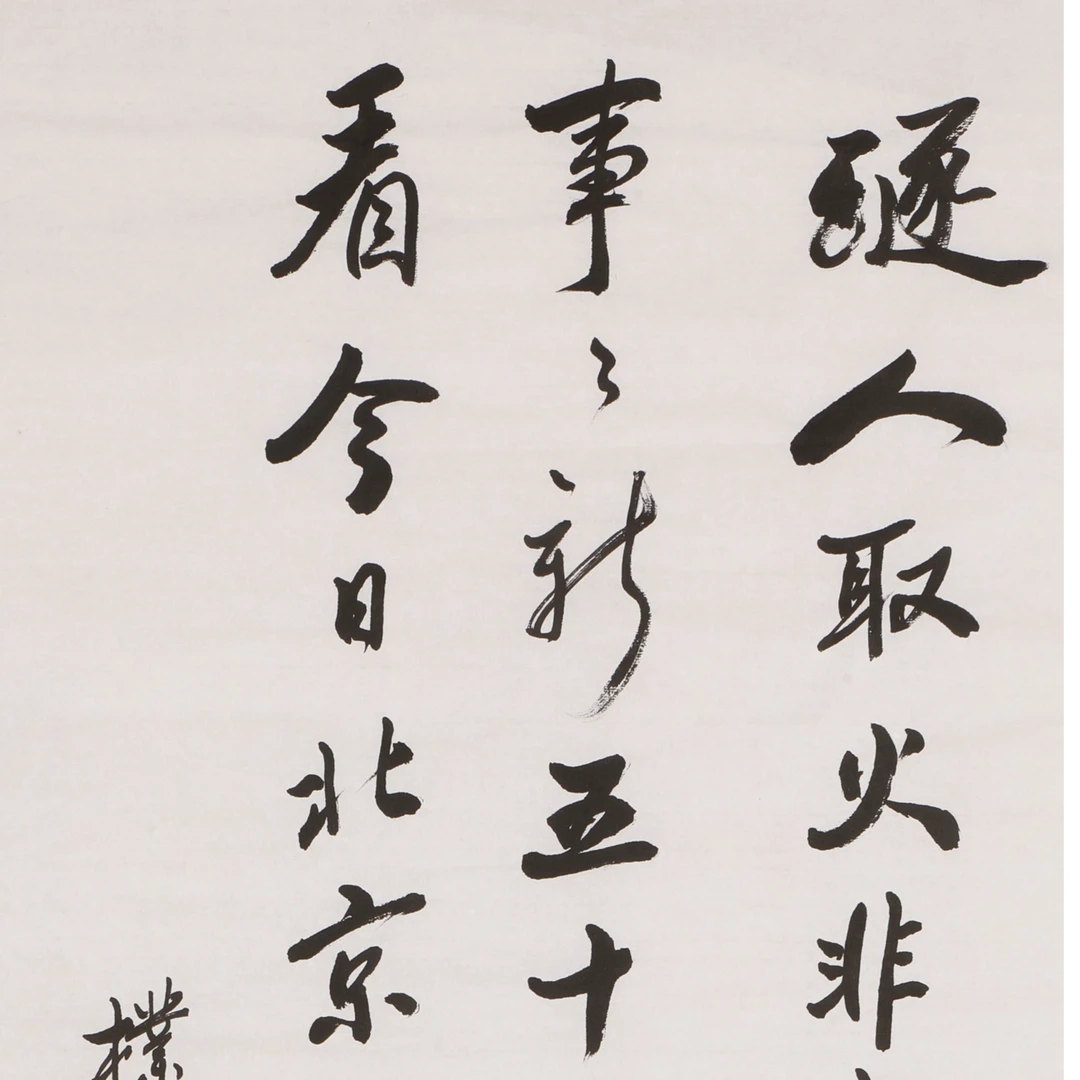 燧人取火非
事〻新五十
看今日北京
樸